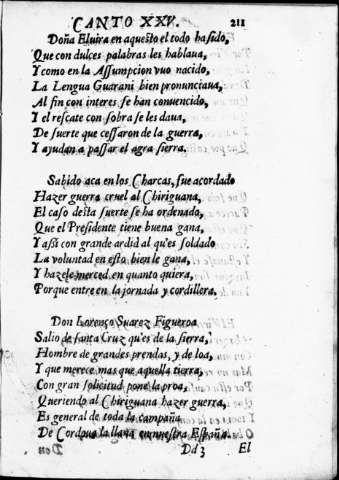 CANTO XXV. 211
Doña Eluira en aquesto el todo ha sido,
Que con dulces palabras les hablaua,
Y como en la Assumpcion vuo nacido,
La Lengua Guarani bien pronunciaua,
Al fin con interes se han conuencido,
Y el rescate con sobra se les daua,
De suerte que cessaron de la guerra,
Y ayudan a passar el agra sierra.
Sabido aca en los Charcas, fue acordado
Hazer guerra cruel al Chiriguana,
El caso desta suerte se ha ordenado,
Que el Presidente tiene buena gana,
Y assi con grande ardid al qu'es soldado
La voluntad en esto bien le gana,
Y hazele merced en quanto quiera,
Porque entre en la jornada y cordillera,
Don Lorenço Suarez Figueroa
Salio de santa Cruz qu'es de la sierra,
Hombre de grandes prendas, y de loa,
Y que merece mas que aquella tierra,
Con gran solicitud pone la proa,
Queriendo al Chiriguana hazer guerra,
Es general de toda la campaña
De Cordoua la llana en nuestra España.
Dd 3 El